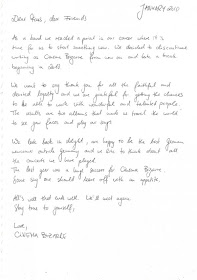 JANUARY 2010
Dear Fans, dear Friends
As a band we reached a point in our career where it is
time for us to start something new. We decided to discontinue
working as Cinema Bizarre from now on and take a break
beginning in 2010.
We want to say thank you for all the faithful and
devoted loyalty and we are grateful for getting the chance
to be able to work with wonderful and talented people.
The results are two albums that made us travel the world
to see your faces and play our songs
We look back in delight, are happy to be the
outside germany and we like to think about all
the concerts we have played.
The last year was a huge success for Cinema Bizarre.
Some say one should leave off with an appetite.
All's well that ends well. We'll meet again
Stay true to yourself,
Love,
CINEMA BIZARRE